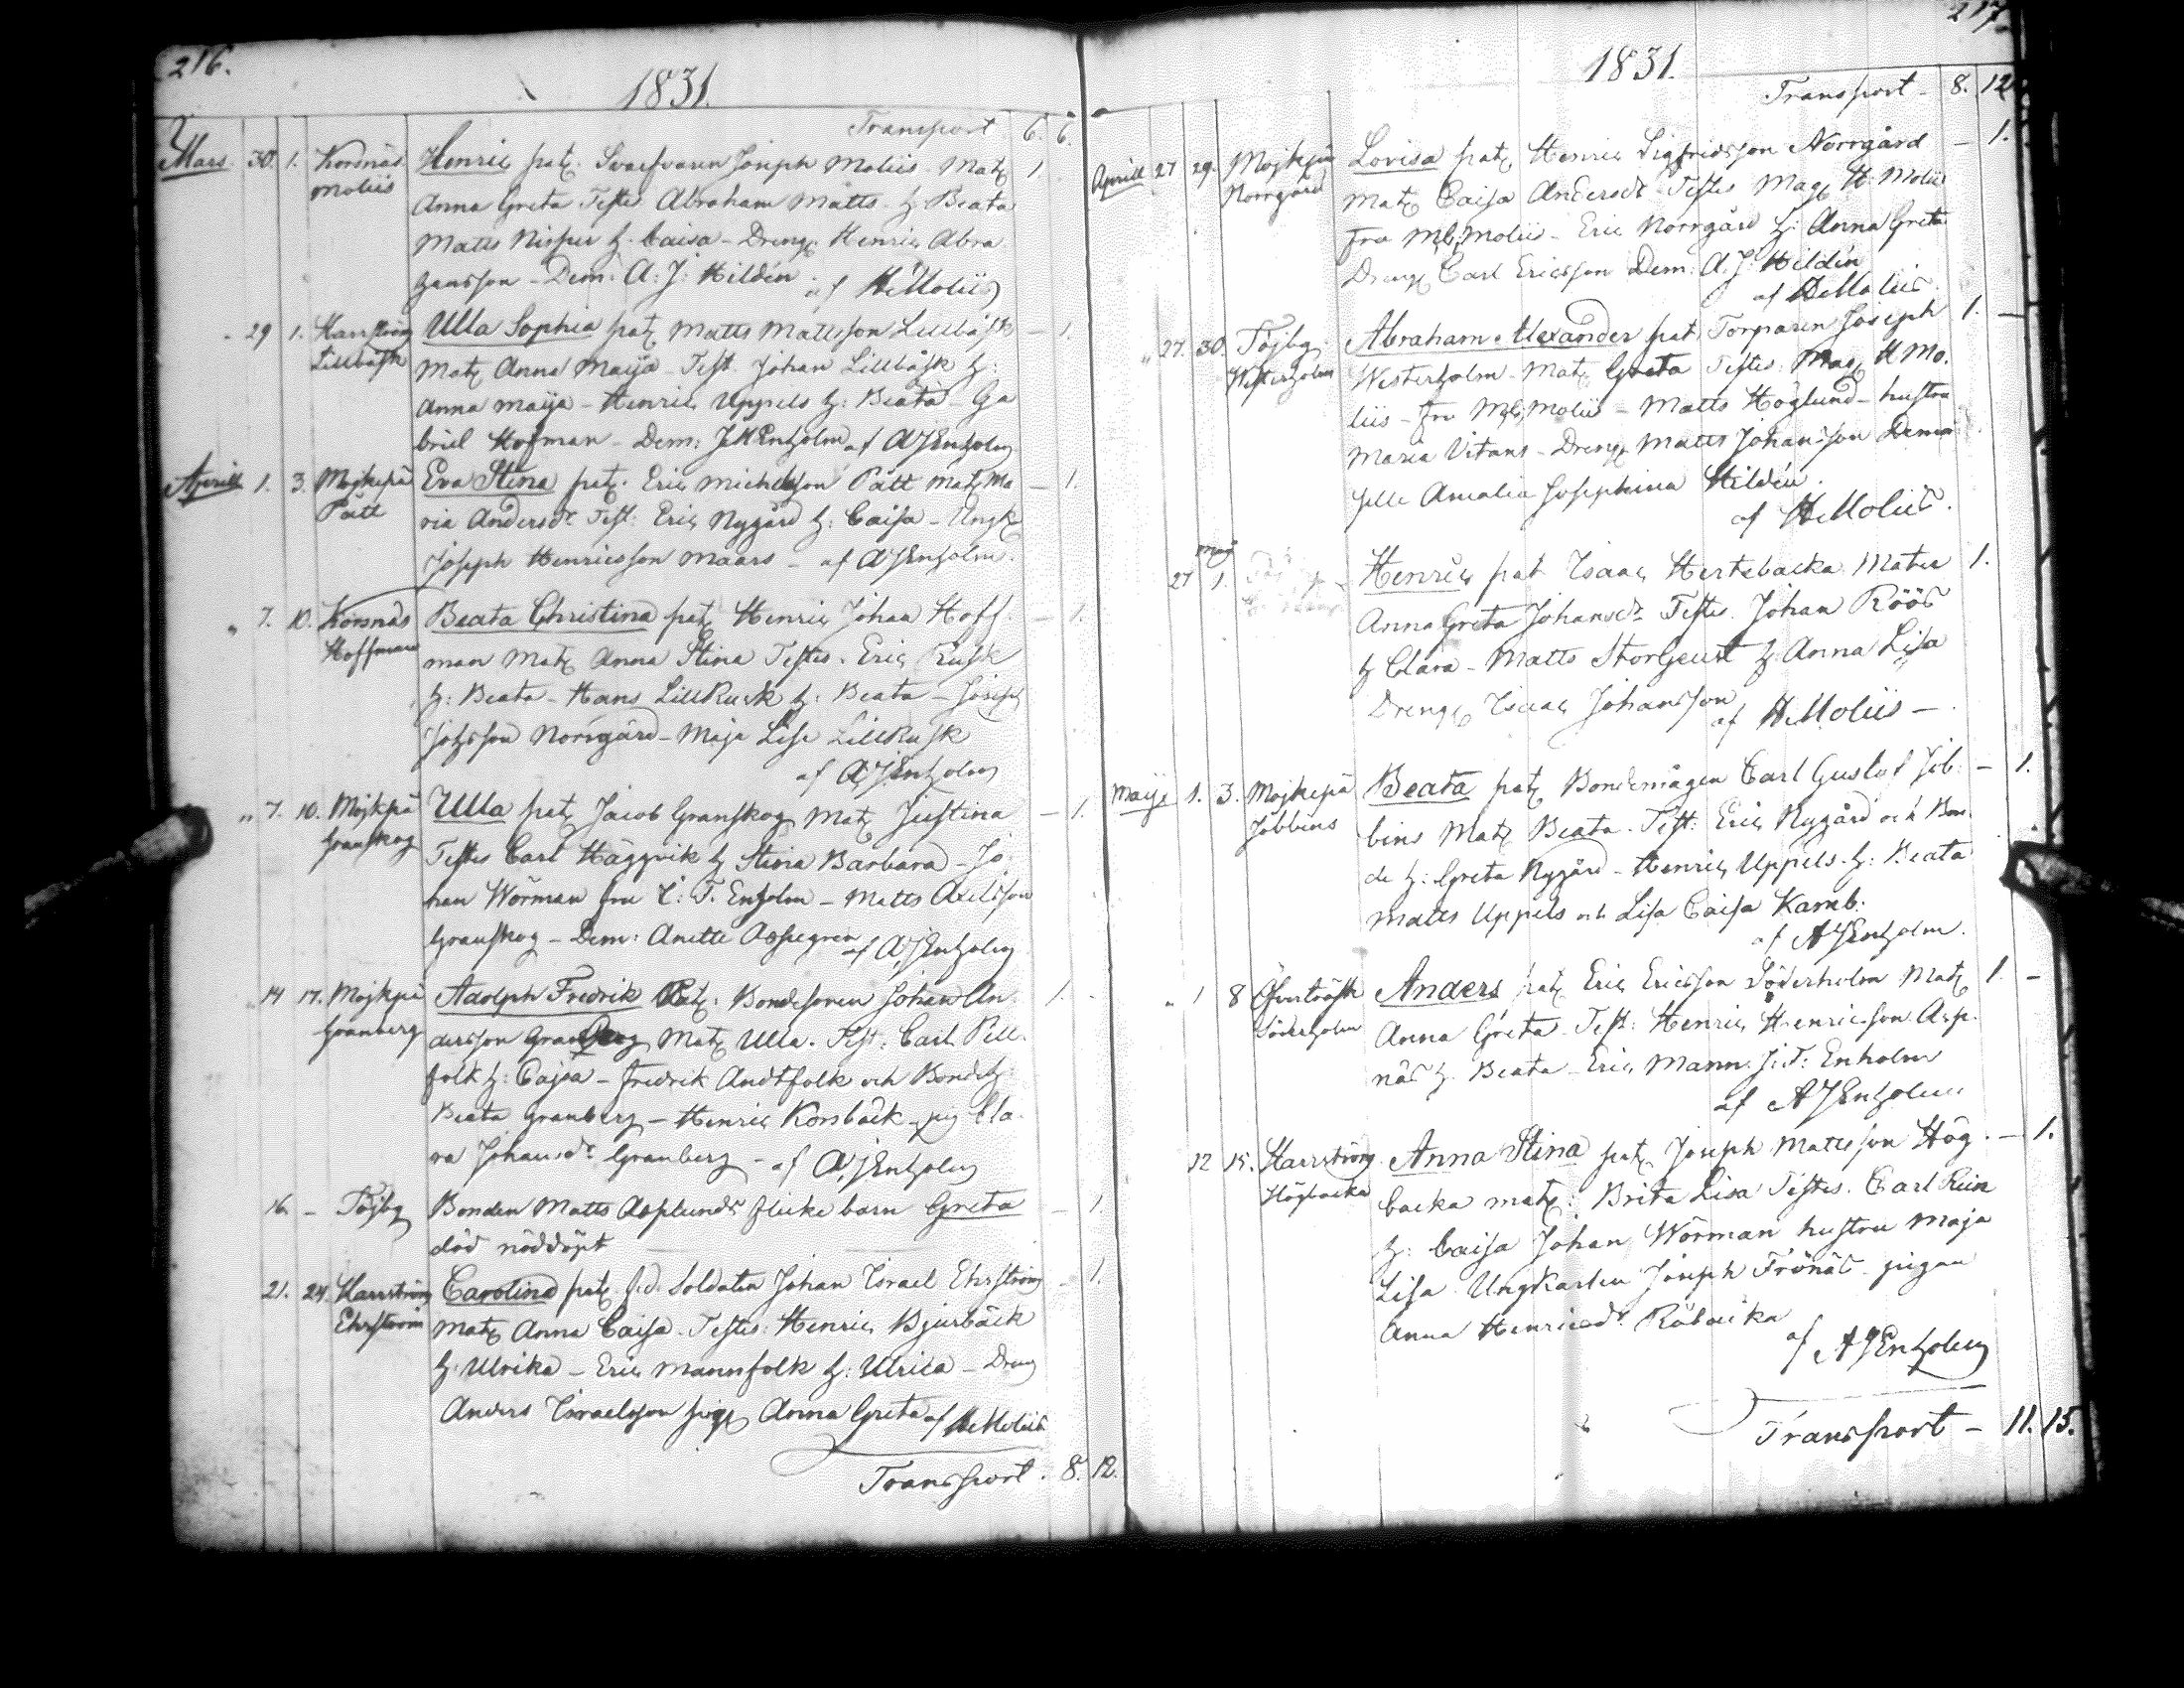 216.
1831.
Transport 6. 6.
Mars. 30. 1. Korsnäs Henric pat. Svarfvaren Joseph Moliis Mat. 1.
Moliis Anna Greta Testes Abraham Matts h. Beata
Matts Nisper h. Caisa - Dreng. Henric Abra
hansson - Dem: A: J: Hildén. af HMoliis
29 1. Harrström Ulla Sophia pat. Matts Mattsson Lillbåsk - 1.
Lillbåsk Mat. Anna Maija Test. Johan Lillbåsk h:
Anna Maija - Henric Uppels h: Beata - Ga
briel Hofman - Dem: Enholm af AJEnholm
Aprill 1. 3. Mojkipä Eva Stina pat. Eric Michelsson Pått Mat. Ma - 1.
Pått ria Andersdr Test: Eric Nygård h: Caisa - Ungk
Joseph Henricsson Maars - af AJEnholm.
7. 10. Korsnäs Beata Christina pat. Henric Johan Hoff- - 1.
Hoffman man Mat. Anna Stina Testes. Eric Rusk
h: Beata - Hans LillRusk h: Beata - Joseph
Johsson Norrgård - Maja Lisa LillRusk
af AJEnholm
" 7. 10. Mojkpä Ulla pat. Jacob Granskog Mat. Justina - 1.
Granskog Testes Carl Häggvik h Stina Barbara - Jo
han Wörman fru C: T. Enholm - Matts Axelsson
Granskog - Dem: Anette Aspegren af AJEnholm
14 17. Mojkpä Adolph Fredrik Pat: Bondesonen Johan An 1. -
Granberg dersson Mat. Ulla. Test: Carl Pell
folk h: Cajsa - Fredrik Andtfolk och Bondeh.
Beata Granberg - Henric Korsbäck - pig Cla
ra Johansdr Granberg - af AJEnholm
16. - Töjby Bonden Matts Asplunds flicke barn Greta - 1.
död nöddöpt
21. 24. Harrström Carolina pat. f.d. Soldaten Johan Israel Ehrström - 1.
Ehrström Mat. Anna Caisa Testes: Henric Bjurbäck
h. Ulrika - Eric Mannfolk h: Ulrica - Dreng
Anders Israelsson pig. Anna Greta af HMoliis
Transport. 8. 12.
217.
1831.
Transport - 8. 12
Aprill 27 29. Mojkpä Lovisa pat. Henric Sigfridsson Norrgård - 1.
Norrgård Mat. Caisa Andersdr Testes Mag. H. Moliis
Fru Moliis - Eric Norrgård h: Anna Greta
Dreng. Carl Ericsson Dem: A: J: Hildén
af HMoliis.
" 27. 30. Töjby Abraham Alexander pat. Torparen Joseph 1. -
Westerholm Westerholm - Mat. Greta Testes: Mag. H Mo.
liis - Fru Moliis - Matts Höglund - hustru
Maria Vitans - Dreng. Matts Johansson Dema
selle Amalia Josephina Hildén.
af HMoliis.
Maij
27 1. Henric pat. Isaac Hertsbacka Mater 1.
Anna Greta Johansdr Testes. Johan Röös
h Clara - Matts StorGeust h: Anna Lisa
Dreng. Isaac Johansson
af HMoliis -
Maij 1. 3. Mojkipä Beata pat. Bondemågen Carl Gustaf Job: - 1.
Jobbins bins Mat. Beata. Test: Eric Nygård och Bon:
de h: Greta Nygård - Henric Uppels h: Beata
Matts Uppels och Lisa Caisa Kamb:
af AJEnholm.
" 1 8 Öfverträsk Anders pat. Eric Ericsson Söderholm Mat. 1. -
Söderholm Anna Greta Test: Henric Henricsson Asp-
näs h. Beata - Eric Mann. J: T: Enholm
af AJEnholm
12 15. Harrström Anna Stina pat. Joseph Mattsson Hög - - 1.
Högbacka backa mat: Brita Lisa Testes. Carl Rein
h: Caisa Johan Wörman hustru Maja
Lisa Ungkarlen Joseph Frönäs pigan
Anna Henricsdr Råbacka
af AJEnholm
Transport - 11. 15.